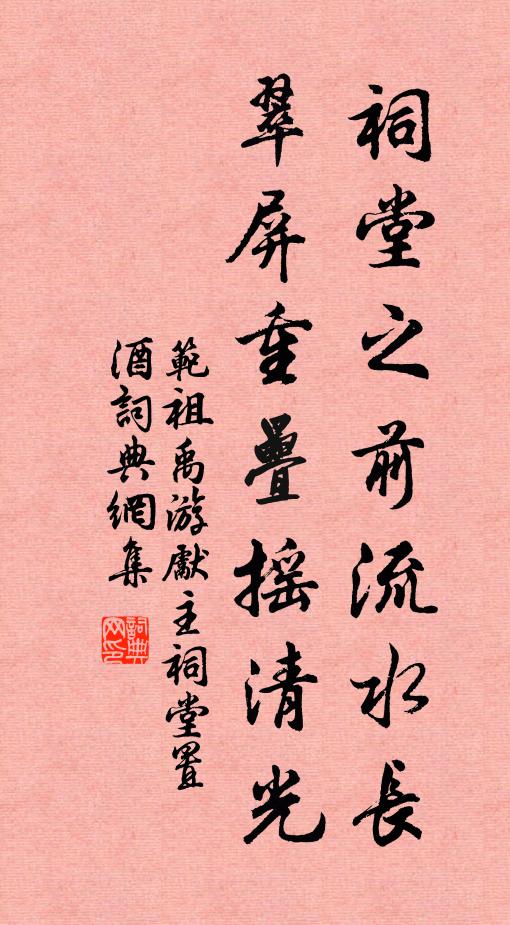 祠堂之前流水長
翠屏重疊搖清光
範祖禹游獻主祠堂置
酒詞典網集
詞典
网印